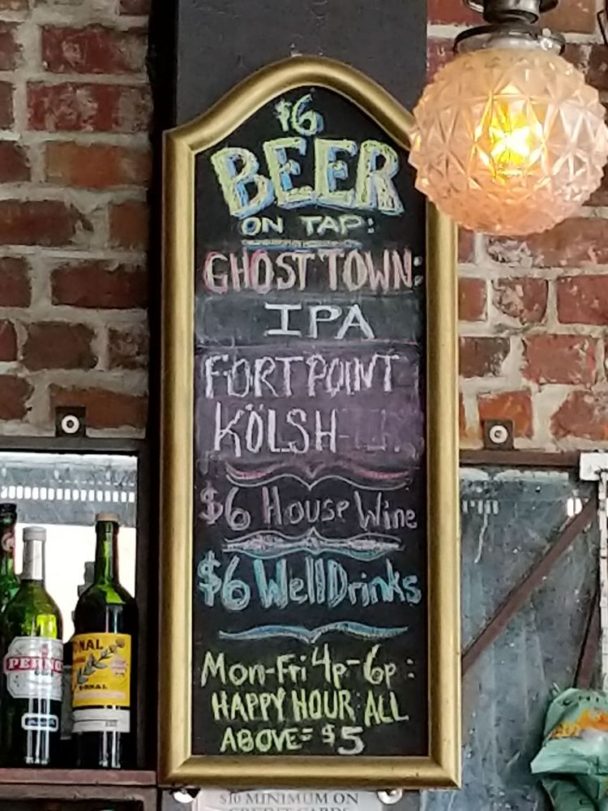 $6
BEER
ON TAP:
GHOST TOWN:
IPA
FORT POINT
KÖLSH
$6 House Wine
$6 Well Drinks
Mon-Fri 4p-6p:
HAPPY HOUR: ALL
ABOVE= $5
$10 MINIMUM ON
CREDIT CARDS
PERNO
NAL